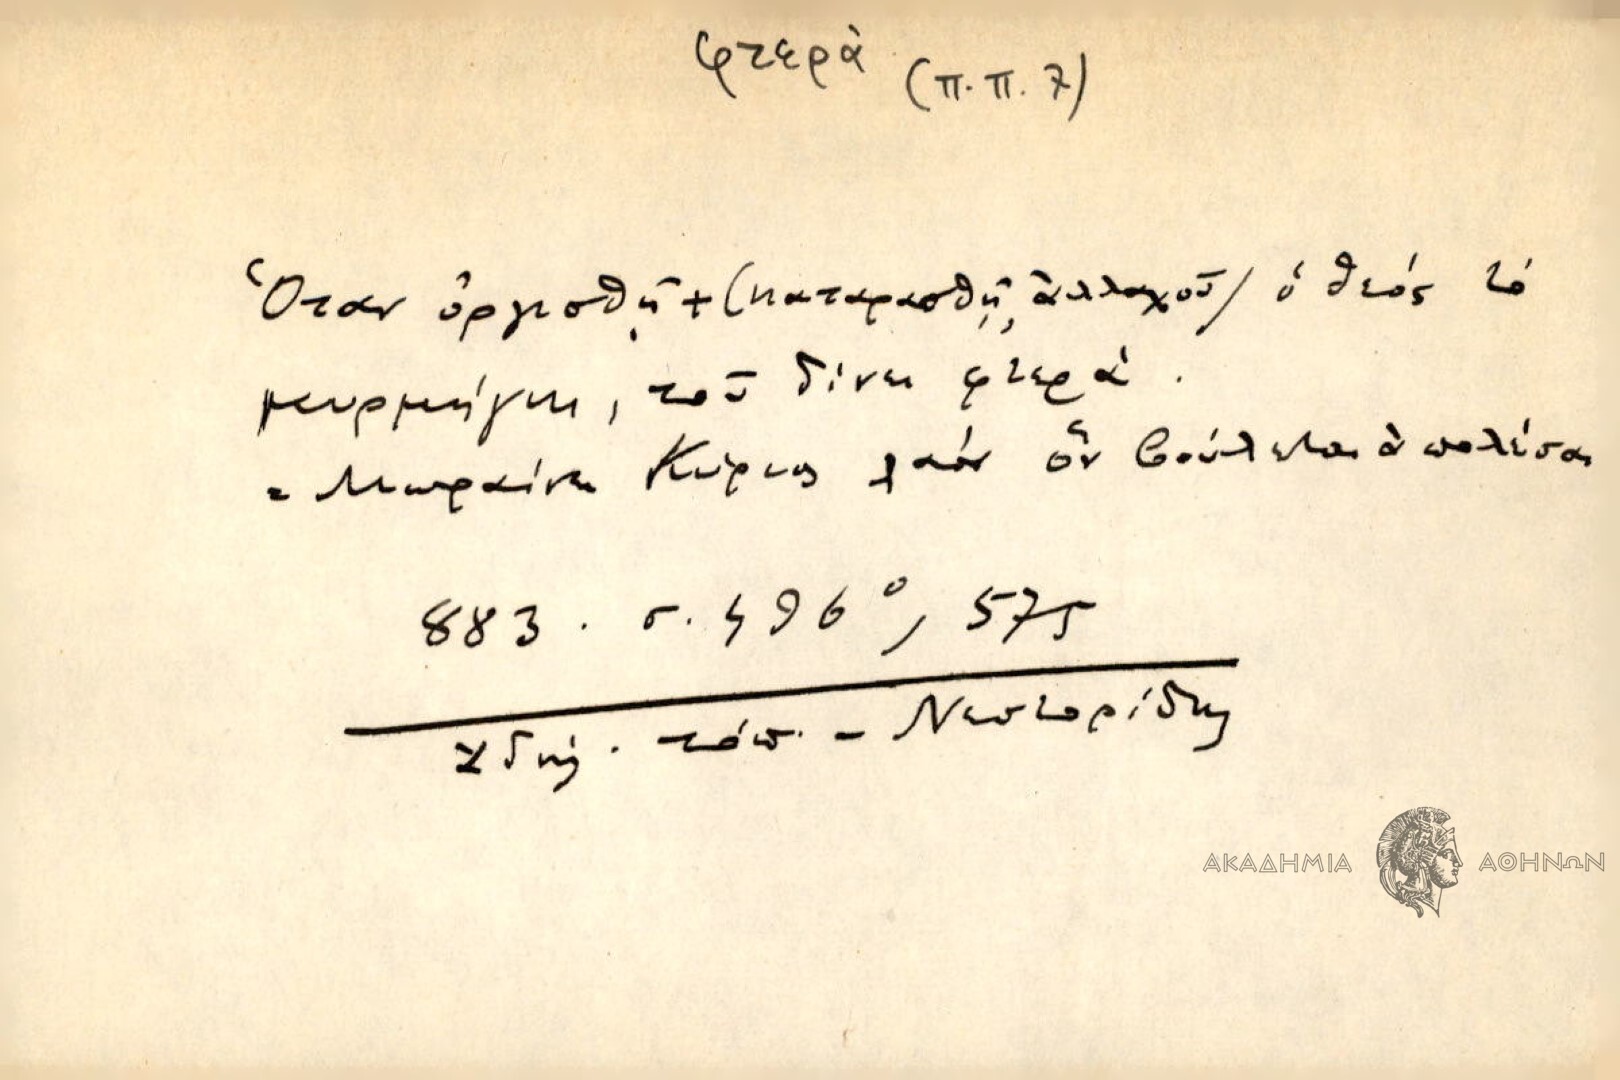 φτερὰ (π.π. 7)
Ὅταν ὀργισθῇ + (καταρασθῇ, ἀλλαχοῦ) ὁ θεός τὸ
μυρμήγκι, τοῦ δίνει φτερά.
= Μωραίνει Κύριος λαόν ὃν βούλεται ἀπολέσαι
883. σ. 496⁰, 575
ἄδηλ. τόπ. - Νεστορίδης
ΑΚΑΔΗΜΙΑ ΑΘΗΝΩΝ